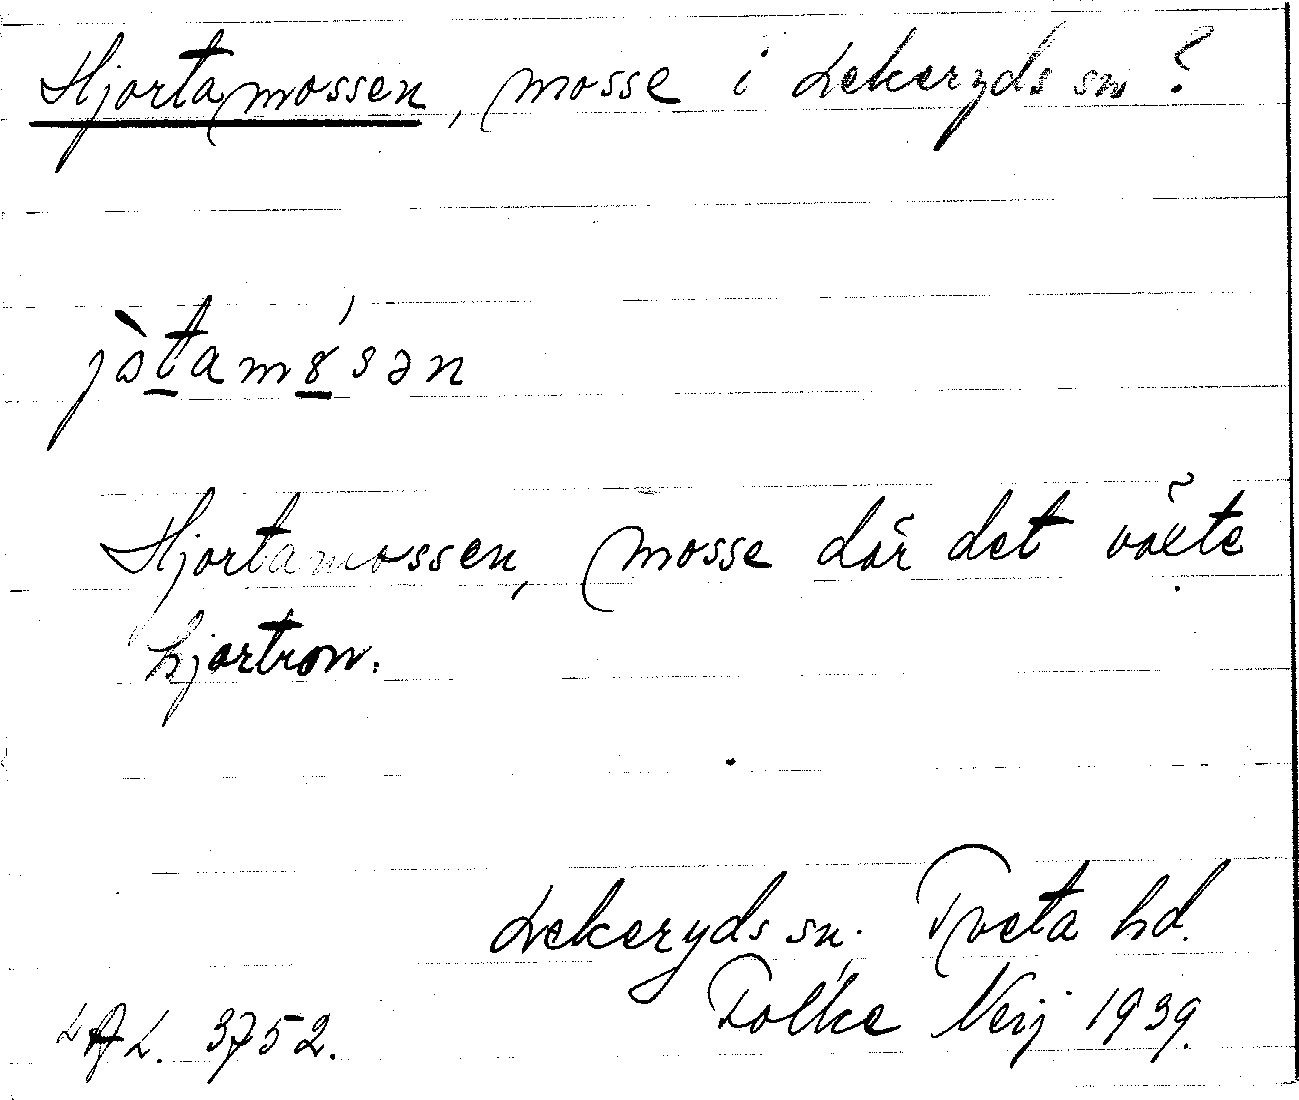 Hjortamossen, mosse i Lekeryds sn?
jòtam8́sən
Hjortamossen, mosse där det växte
hjortron.
Lekeryds sn. Tveta hd.
LAL. 3752. Folke Neij 1939.